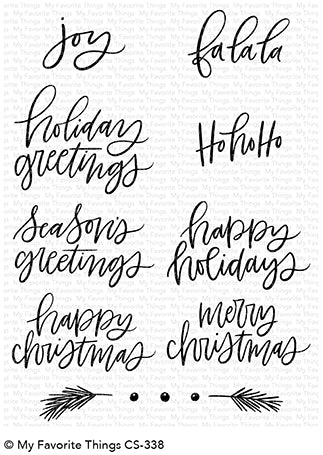 joy
falala
holiday
greetings
HoHoHo
season's
greetings
happy
holidays
happy
christmas
merry
christmas
© My Favorite Things CS-338